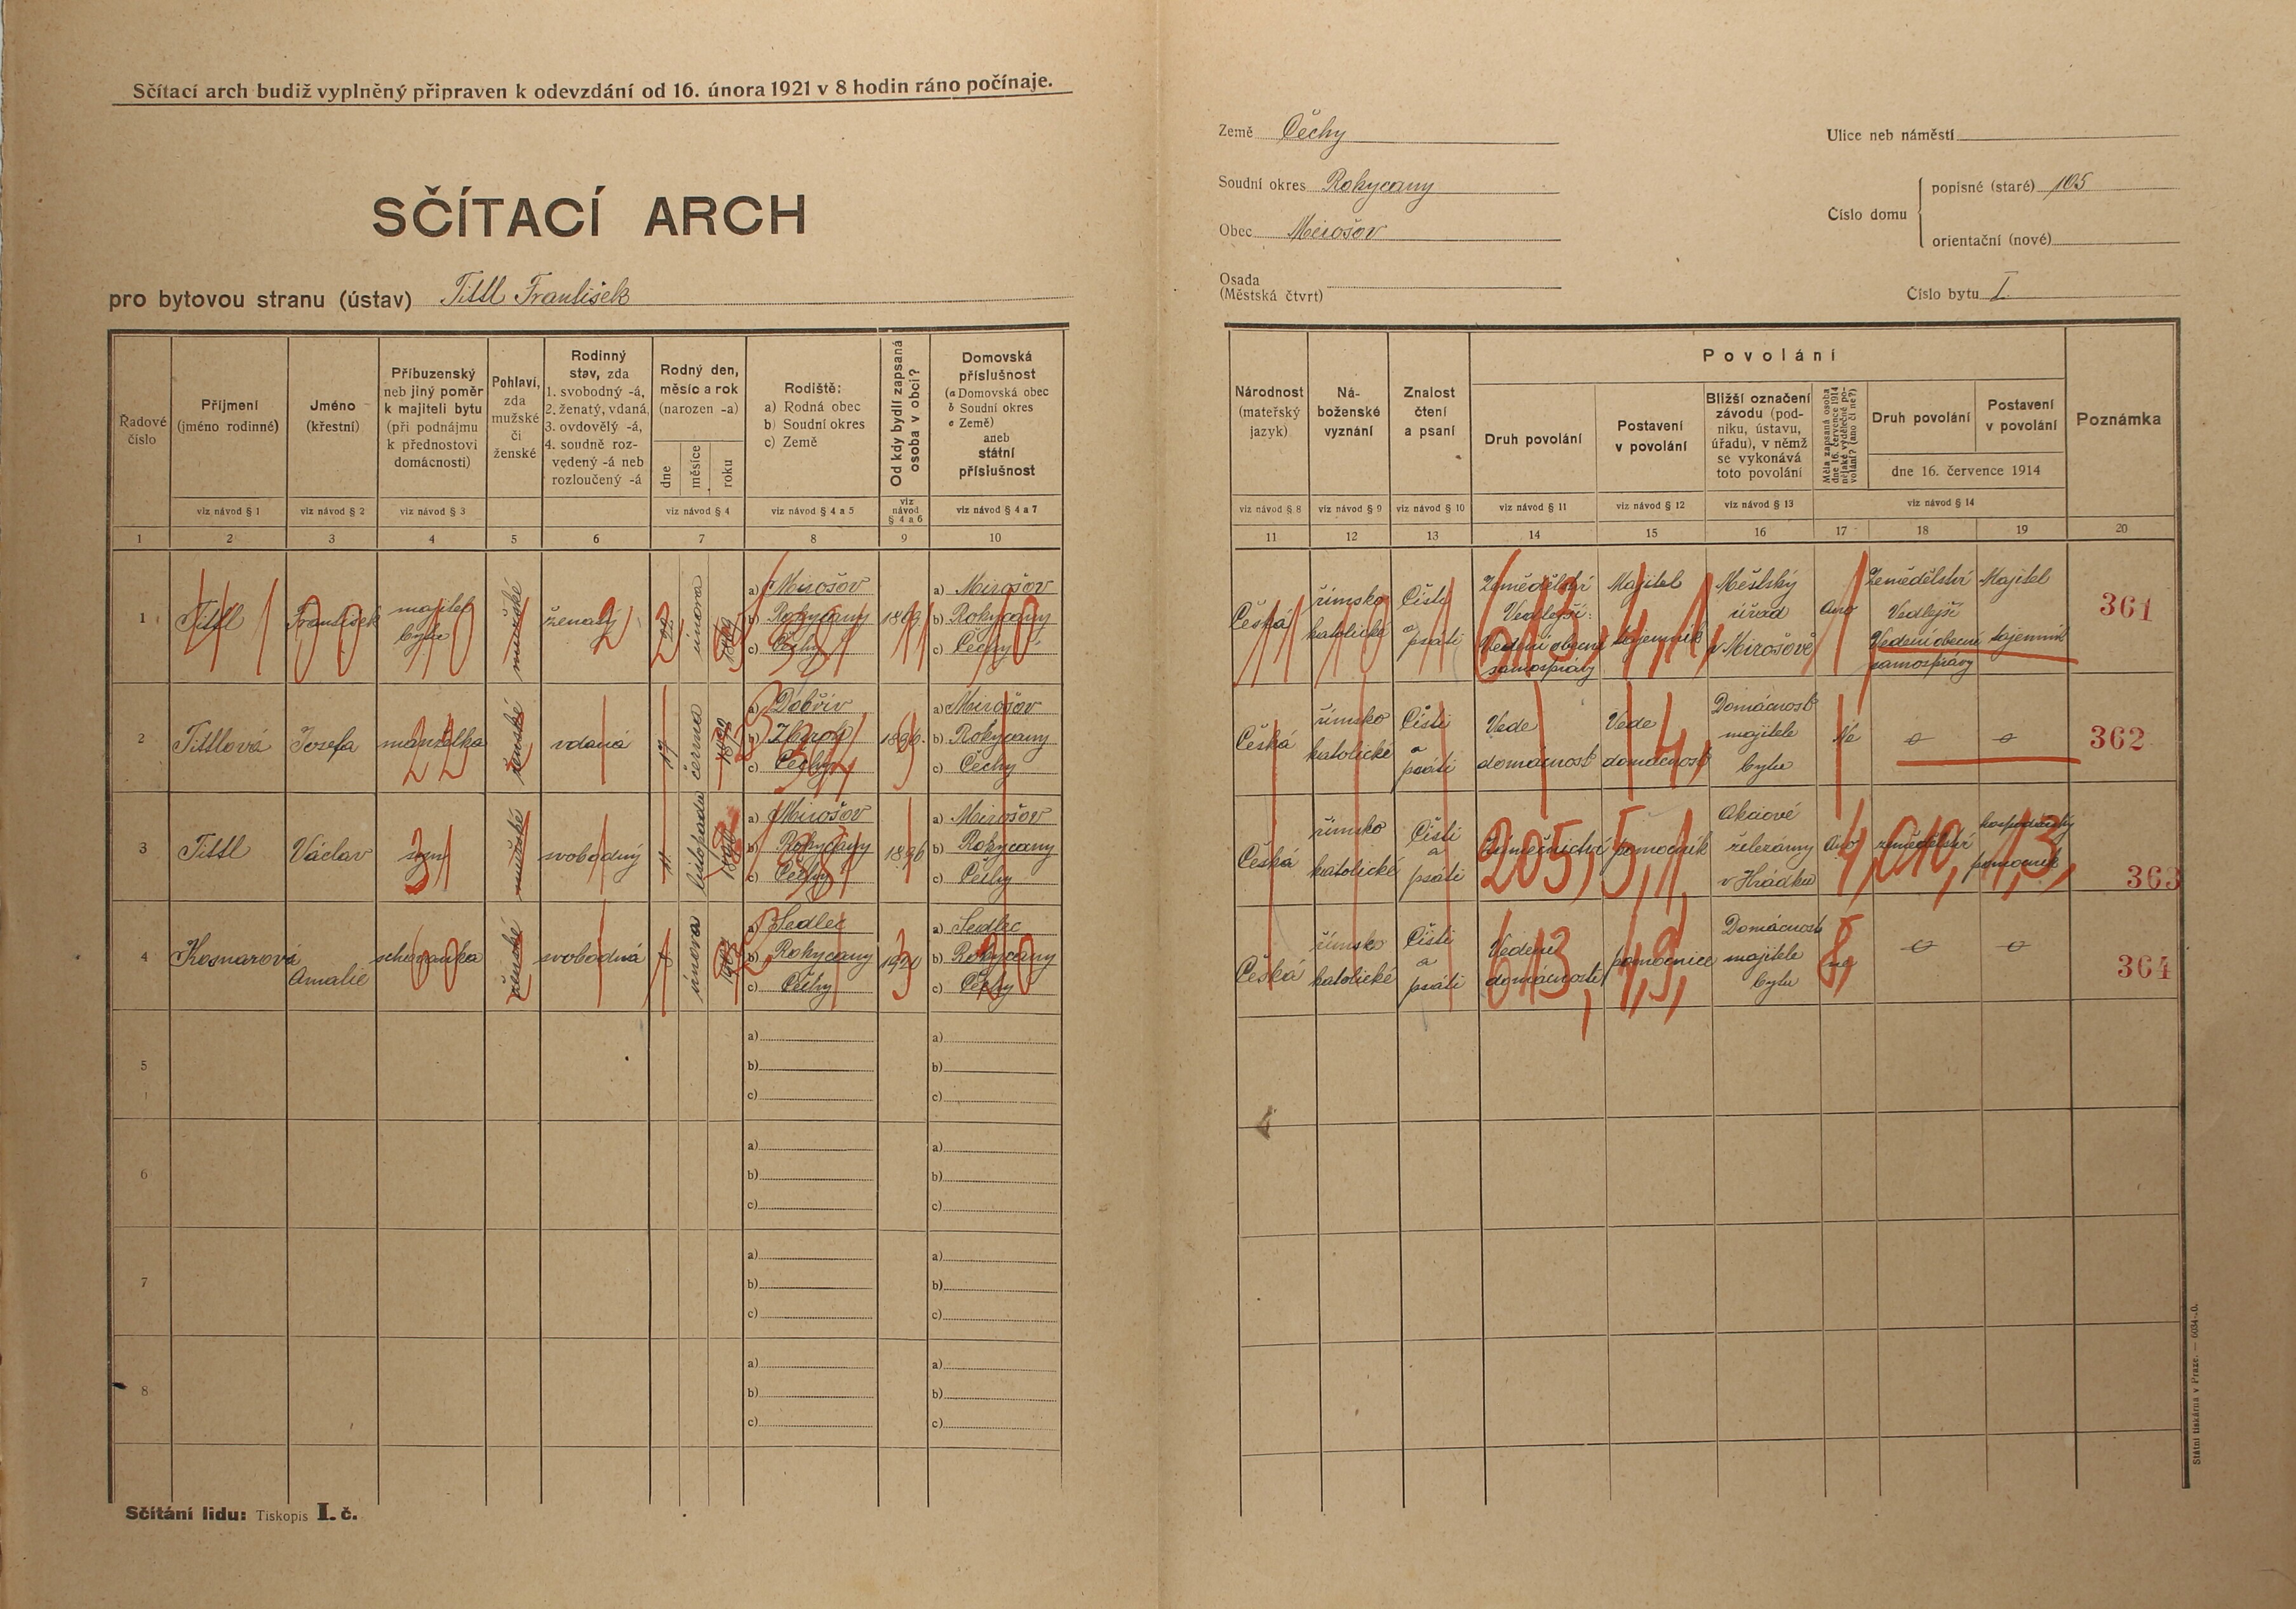 Sčítací arch budiž vyplněný připraven k odevzdání od 16. února 1921 v 8 hodin ráno počínaje.
SČÍTACÍ ARCH
pro bytovou stranu (ústav) Tittl František
Země Čechy
Soudní okres Rokycany
Obec Mirošov
Osada
(Městská čtvrt)
Ulice neb náměstí
Číslo domu
popisné (staré) 105
orientační (nové)
Číslo bytu I.
Řadové číslo
Příjmení (jméno rodinné)
Jméno (křestní)
Příbuzenský neb jiný poměr k majiteli bytu (při podnájmu k přednostovi domácnosti)
Pohlaví, zda mužské či ženské
Rodinný stav, zda 1. svobodný -á, 2. ženatý, vdaná, 3. ovdovělý -á, 4. soudně rozvedený -á neb rozloučený -á
Rodný den, měsíc a rok (narozen -a)
dne
měsíce
roku
Rodiště: a) Rodná obec b) Soudní okres c) Země
Od kdy bydlí zapsaná osoba v obci?
Domovská příslušnost (a Domovská obec b Soudní okres c Země) aneb státní příslušnost
viz návod § 1
viz návod § 2
viz návod § 3
viz návod § 4
viz návod § 4 a 5
viz návod § 4 a 6
viz návod § 4 a 7
1 2 3 4 5 6 7 8 9 10
Národnost (mateřský jazyk)
Náboženské vyznání
Znalost čtení a psaní
Povolání
Druh povolání
Postavení v povolání
Bližší označení závodu (podniku, ústavu, úřadu), v němž se vykonává toto povolání
Měla zapsaná osoba dne 16. července 1914 nějaké výdělečné povolání? (ano či ne?)
Druh povolání
Postavení v povolání
dne 16. července 1914
Poznámka
viz návod § 8
viz návod § 9
viz návod § 10
viz návod § 11
viz návod § 12
viz návod § 13
viz návod § 14
11 12 13 14 15 16 17 18 19 20
1 Tittl František majitel bytu mužské ženatý 22 února 1869
a) Mirošov
b) Rokycany
c) Čechy
1869
a) Mirošov
b) Rokycany
c) Čechy
Česká římsko katolické Čísti a psáti
Zemědělství Vedlejší: Vedení obecní samosprávy
Majitel tajemník
Městský úřad v Mirošově
Ano
Zemědělství Vedlejší Vedení obecní samosprávy
Majitel tajemník
361
2 Tittlová Josefa manželka ženské vdaná 17 června
a) Dobřív
b) Zbiroh
c) Čechy
1896
a) Mirošov
b) Rokycany
c) Čechy
Česká římsko katolické Čísti a psáti
Vede domácnost
Vede domácnost
Domácnost majitele bytu
Ne
362
3 Tittl Václav syn mužské svobodný 11 listopadu
a) Mirošov
b) Rokycany
c) Čechy
1896
a) Mirošov
b) Rokycany
c) Čechy
Česká římsko katolické Čísti a psáti
Zámečnictví
pomocník
Akciové železárny v Hrádku
Ano
zemědělství
hospodářský pomocník
205, 5,1, 4, 010, 1,3,
363
4 Kosnarová Amalie schovanka ženské svobodná února
a) Sedlec
b) Rokycany
c) Čechy
a) Sedlec
b) Rokycany
c) Čechy
Česká římsko katolické Čísti a psáti
Vedení domácnosti
pomocnice
Domácnost majitele bytu
ne
613, 4,9, 8,
364
5
a)
b)
c)
a)
b)
c)
6
a)
b)
c)
a)
b)
c)
7
a)
b)
c)
a)
b)
c)
8
a)
b)
c)
a)
b)
c)
Sčítání lidu: Tiskopis I. č.
Státní tiskárna v Praze. — 6034-20.